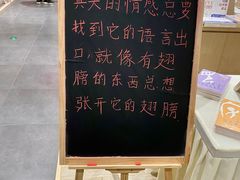 真实的情感总要
找到它的语言出
口就像有翅
膀的东西总想
张开它的翅膀